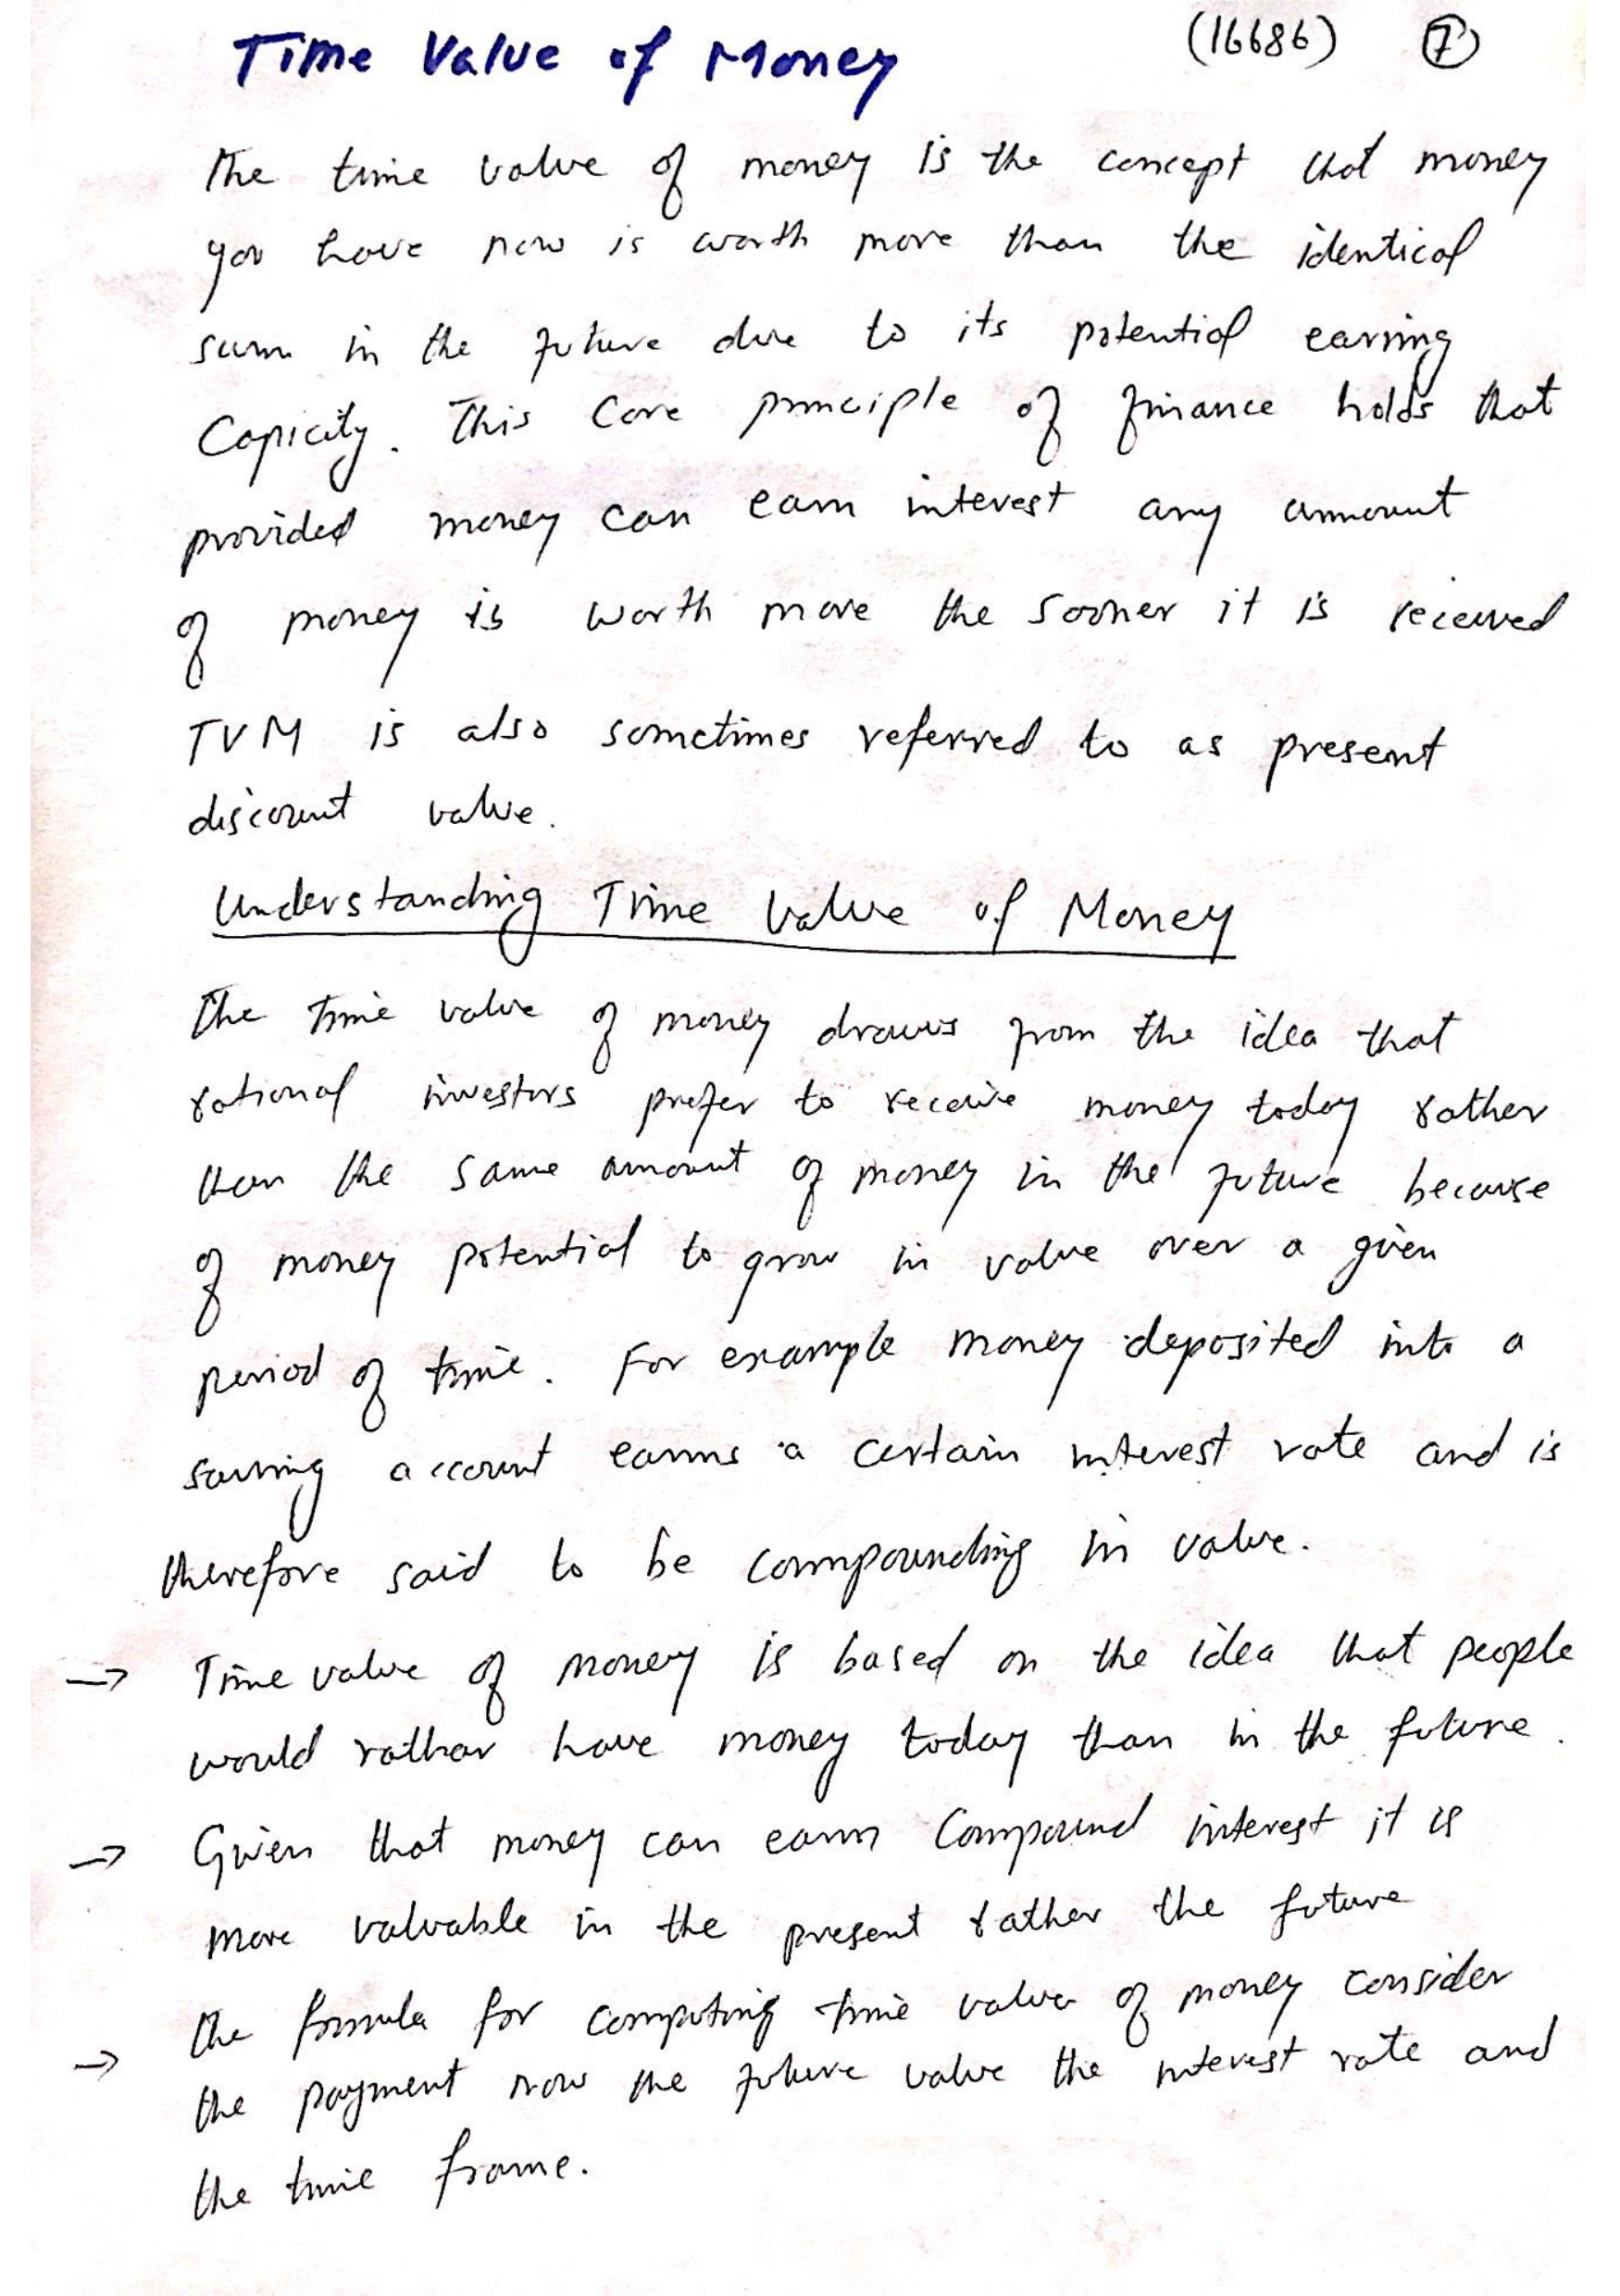 Time Value of Money (16686) 7
The time value of money is the concept that money
you have now is worth more than the identical
sum in the future due to its potential earning
Capicity. This Core principle of finance holds that
provided money can earn interest any ammount
of money is worth more the sooner it is received
TVM is also sometimes referred to as present
discount value.
Understanding Time Value of Money
The time value of money draws from the idea that
rational investors prefer to receive money today rather
than the same amount of money in the future because
of money potential to grow in value over a given
period of time. For example money deposited into a
saving account earns a certain interest rate and is
therefore said to be compounding in value.
→ Time value of money is based on the idea that people
would rather have money today than in the future.
→ Given that money can earn Compound interest it is
more valuable in the present rather the future
→ The formula for computing time value of money consider
the payment now the future value the interest rate and
the time frame.